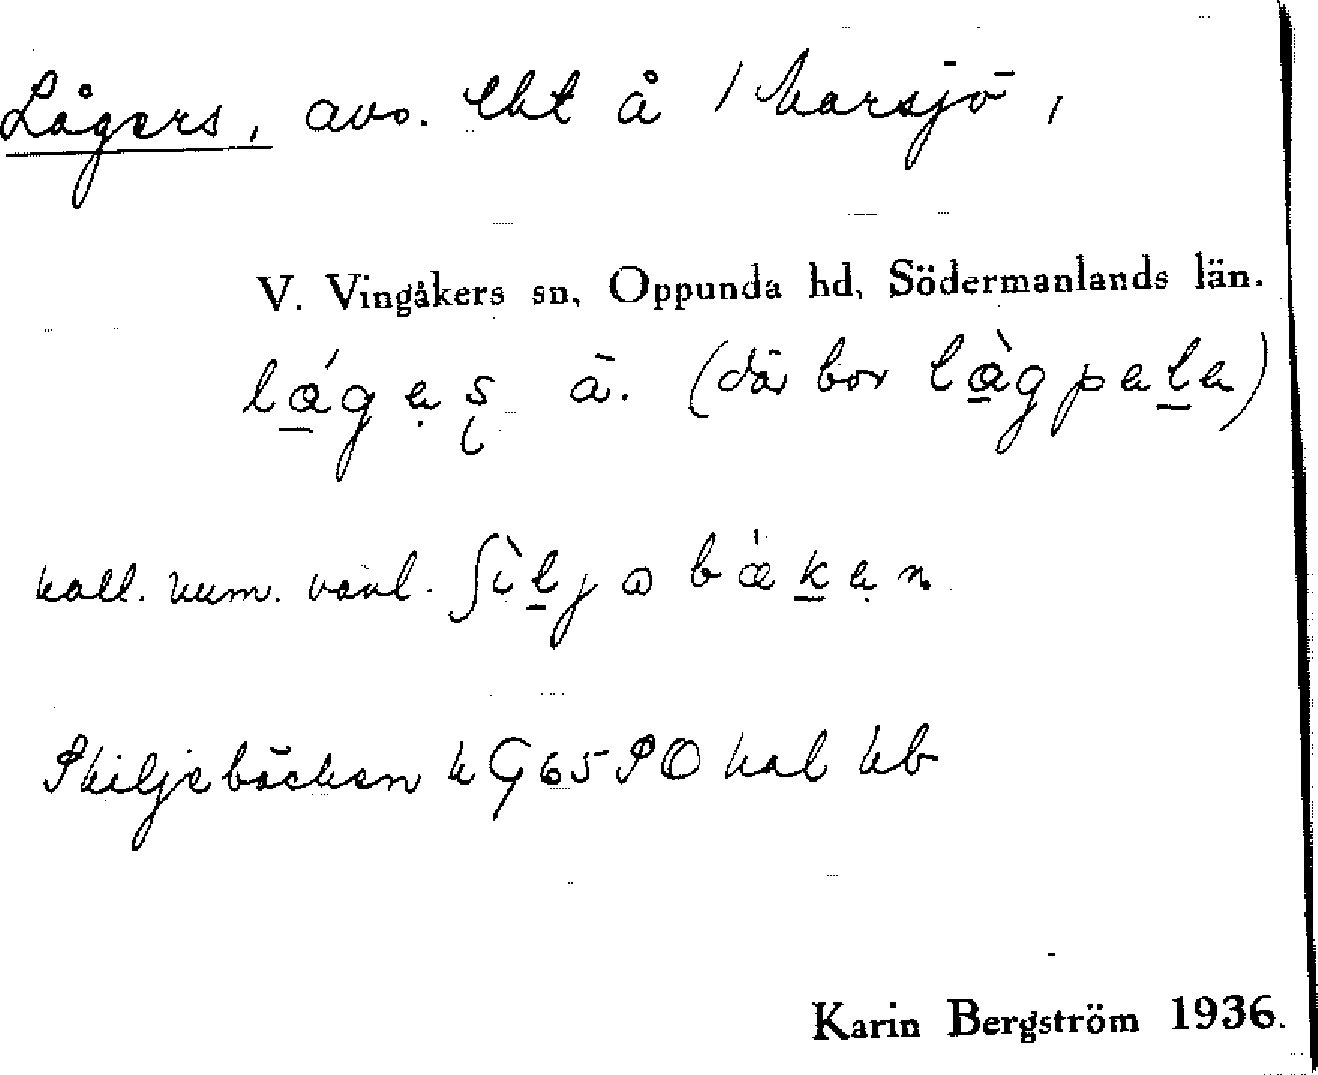 Lågers, avs. lht å / Marsjö,
V. Vingåkers sn, Oppunda hd, Södermanlands län.
lågəʂ ä. (där bor lågpala)
kall. num. vanl. ʃiljabäkən
Skiljebäcken k G 65 SO kal kb
Karin Bergström 1936.